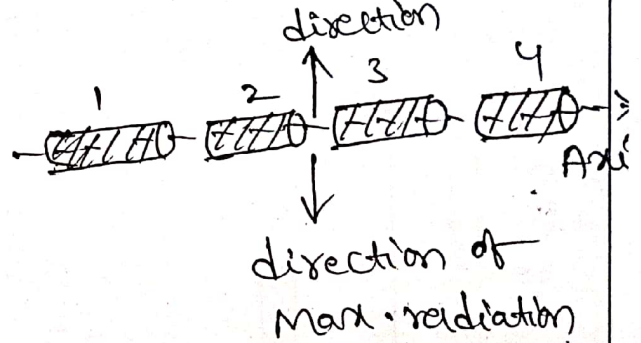 direction
1 2 3 4
Axi
direction of
Max. radiation